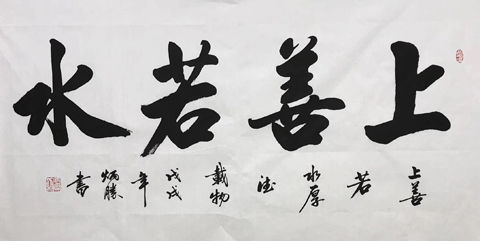 上善若水
上善若水厚德载物戊戌年炳胜书